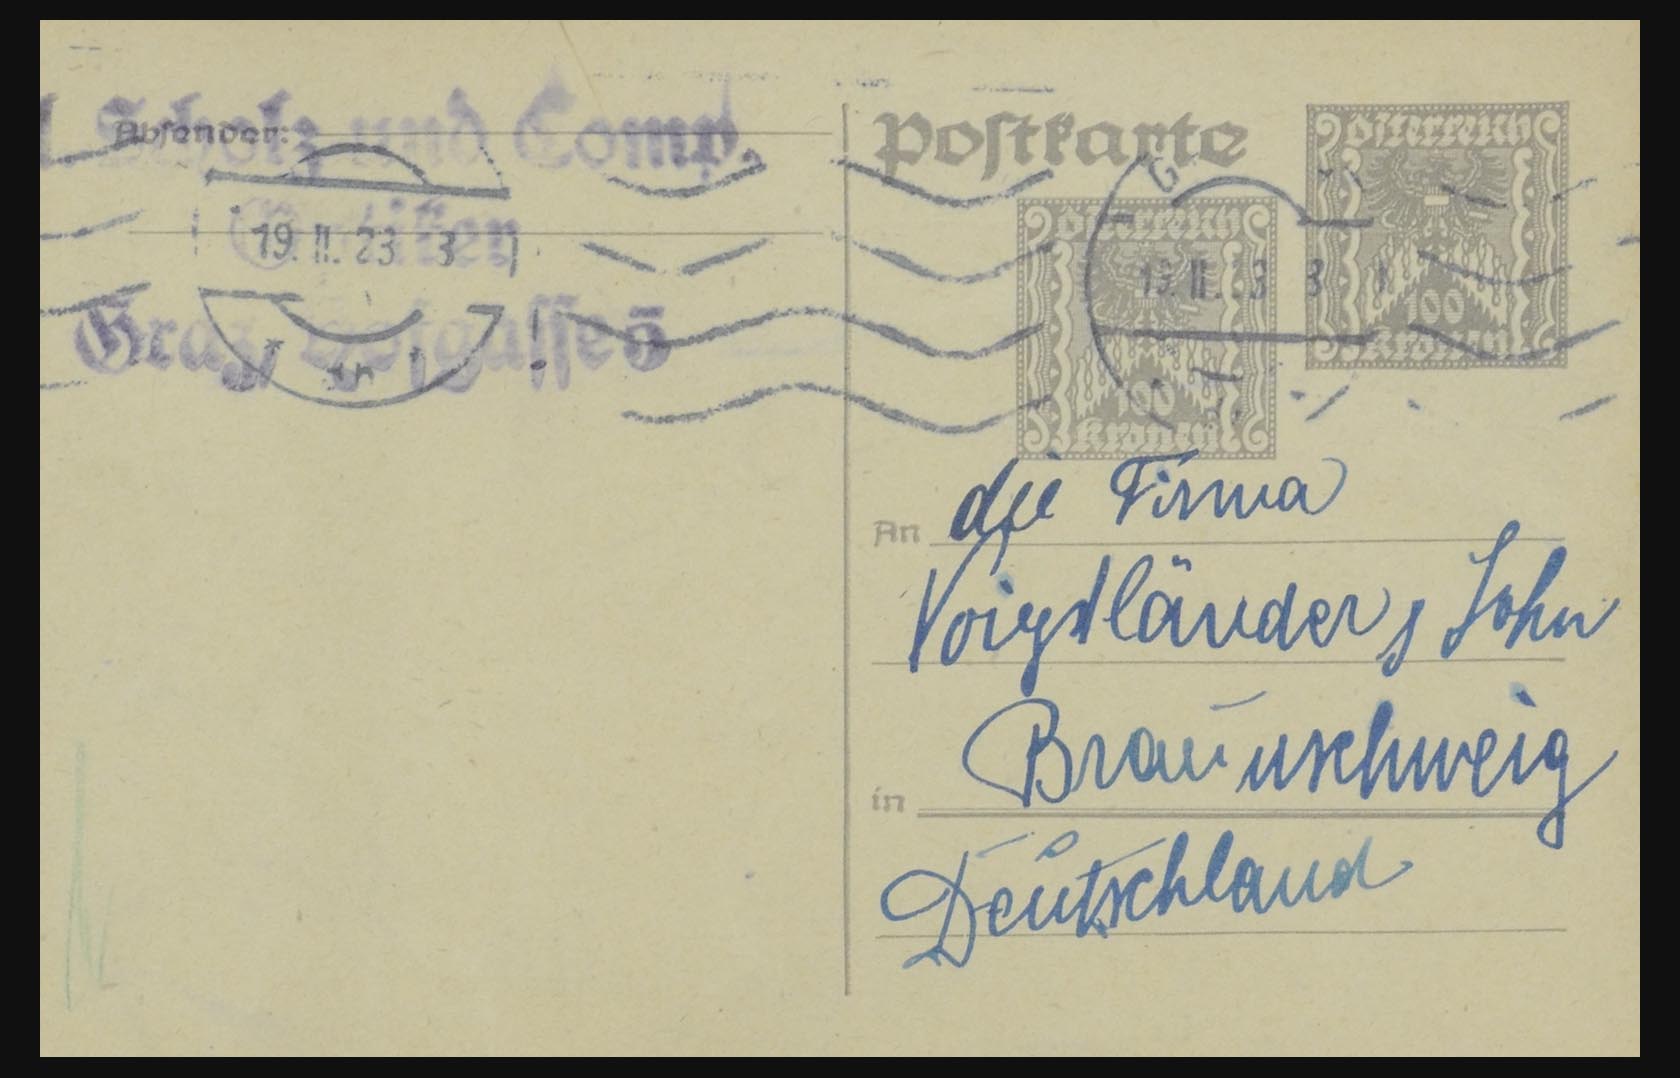 Absender:
Scholz und Comp.
Optiker
Graz, Hofgasse 5
19. II. 23 3
Postkarte
Österreich
100
Kronen
Österreich
100
Kronen
19. II. 3 3
An die Firma
Voigtländer, Sohn
in Braunschweig
Deutschland